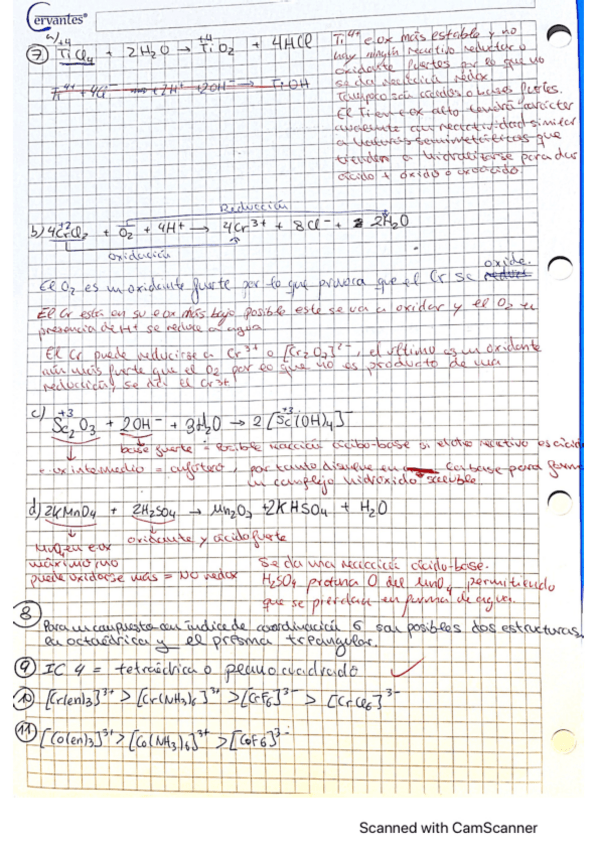 Cervantes®
a)
⑦ +4 TiCl4 + 2H2O → +4 TiO2 + 4HCl
Ti4+ e.ox más estable y no
hay ningún reactivo reductor o
oxidante fuertes por lo que no
se da reacción redox
Tampoco son ácidos o bases fuertes.
El Ti en e.ox alto tendrá carácter
covalente con reactividad similar
a haluros semimetálicos que
tienden a hidrolizarse para dar
ácido + óxido o oxoácido.
Ti4+ + 4Cl- + 2H+ 2OH- → TiOH
Reducción
b) 4CrCl2 + O2 + 4H+ → 4Cr3+ + 8Cl- + 2H2O
oxidación
El O2 es un oxidante fuerte por lo que provoca que el Cr se oxide.
El Cr está en su e.ox más bajo posible este se va a oxidar y el O2 en
presencia de H+ se reduce a agua
El Cr puede reducirse a Cr3+ o [Cr2O7]2-, el último es un oxidante
aún más fuerte que el O2 por lo que no es producto de una
reducción, se da el Cr3+
c) +3 Sc2O3 + 2OH- + 3H2O → 2 [+3 Sc(OH)4]-
base fuerte = posible reacción ácido-base si el otro reactivo es ácido
= ox intermedio = anfótero, por tanto disuelve en base para formar
un complejo hidróxido soluble.
d) 2KMnO4 + 2H2SO4 → Mn2O7 + 2KHSO4 + H2O
oxidante y ácido fuerte
MnO4 en e.ox
máximo no
puede oxidarse más = NO redox
Se da una reacción ácido-base.
H2SO4 protona O del MnO4, permitiendo
que se pierdan en forma de agua.
⑧
Para un compuesto con índice de coordinación 6 son posibles dos estructuras,
la octaédrica y el prisma triangular.
⑨ IC 4 = tetraédrica o plano cuadrado
⑩ [Cr(en)3]3+ > [Cr(NH3)6]3+ > [CrF6]3- > [CrCl6]3-
⑪ [Co(en)3]3+ > [Co(NH3)6]3+ > [CoF6]3-
Scanned with CamScanner